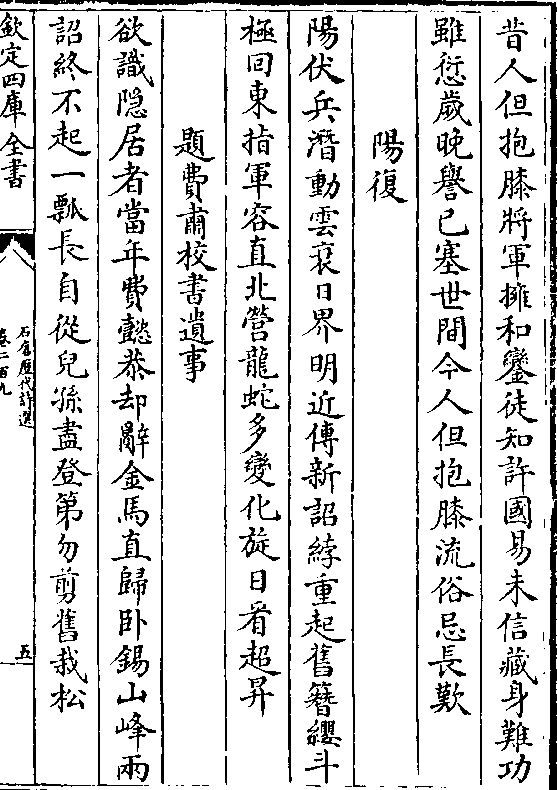 昔人但抱膝將軍擁和鑾徒知許國易未信藏身難功
雖愆歲晚譽已塞世間今人但抱膝流俗忌長歎
陽復
陽伏兵潛動雲衮日界明近傳新詔綍重起舊簪纓斗
極回東指軍容直北營龍蛇多變化旋日看超昇
題費肅校書遺事
欲識隐居者當年費懿恭却辭金馬直歸卧錫山峰兩
詔終不起一瓢長自從兒孫盡登第勿剪舊栽松
欽定四庫全書
石倉歷代詩選
卷二百九
五